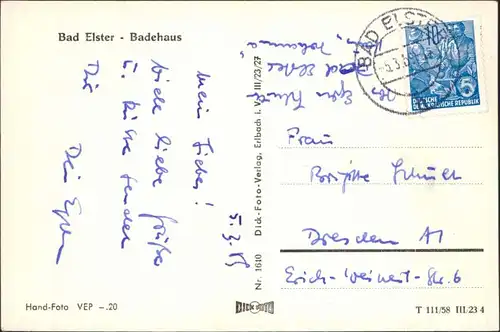 Bad Elster - Badehaus
5.3.
Mein Liebes!
viele liebe Grüße
u. Küsse senden
Dir
Dein Egon
Nr. 1610 Dick-Foto-Verlag, Erlbach i. V. III/23/27
DICK FOTO
Hand-Foto VEP -.20
Egon
Bad Elster
BAD ELSTER
10
DEUTSCHE
DEMOKRATISCHE REPUBLIK
Frau
Brigitte
Dresden A1
Erich-Weinert-Str. 6
T 111/58 III/23 4